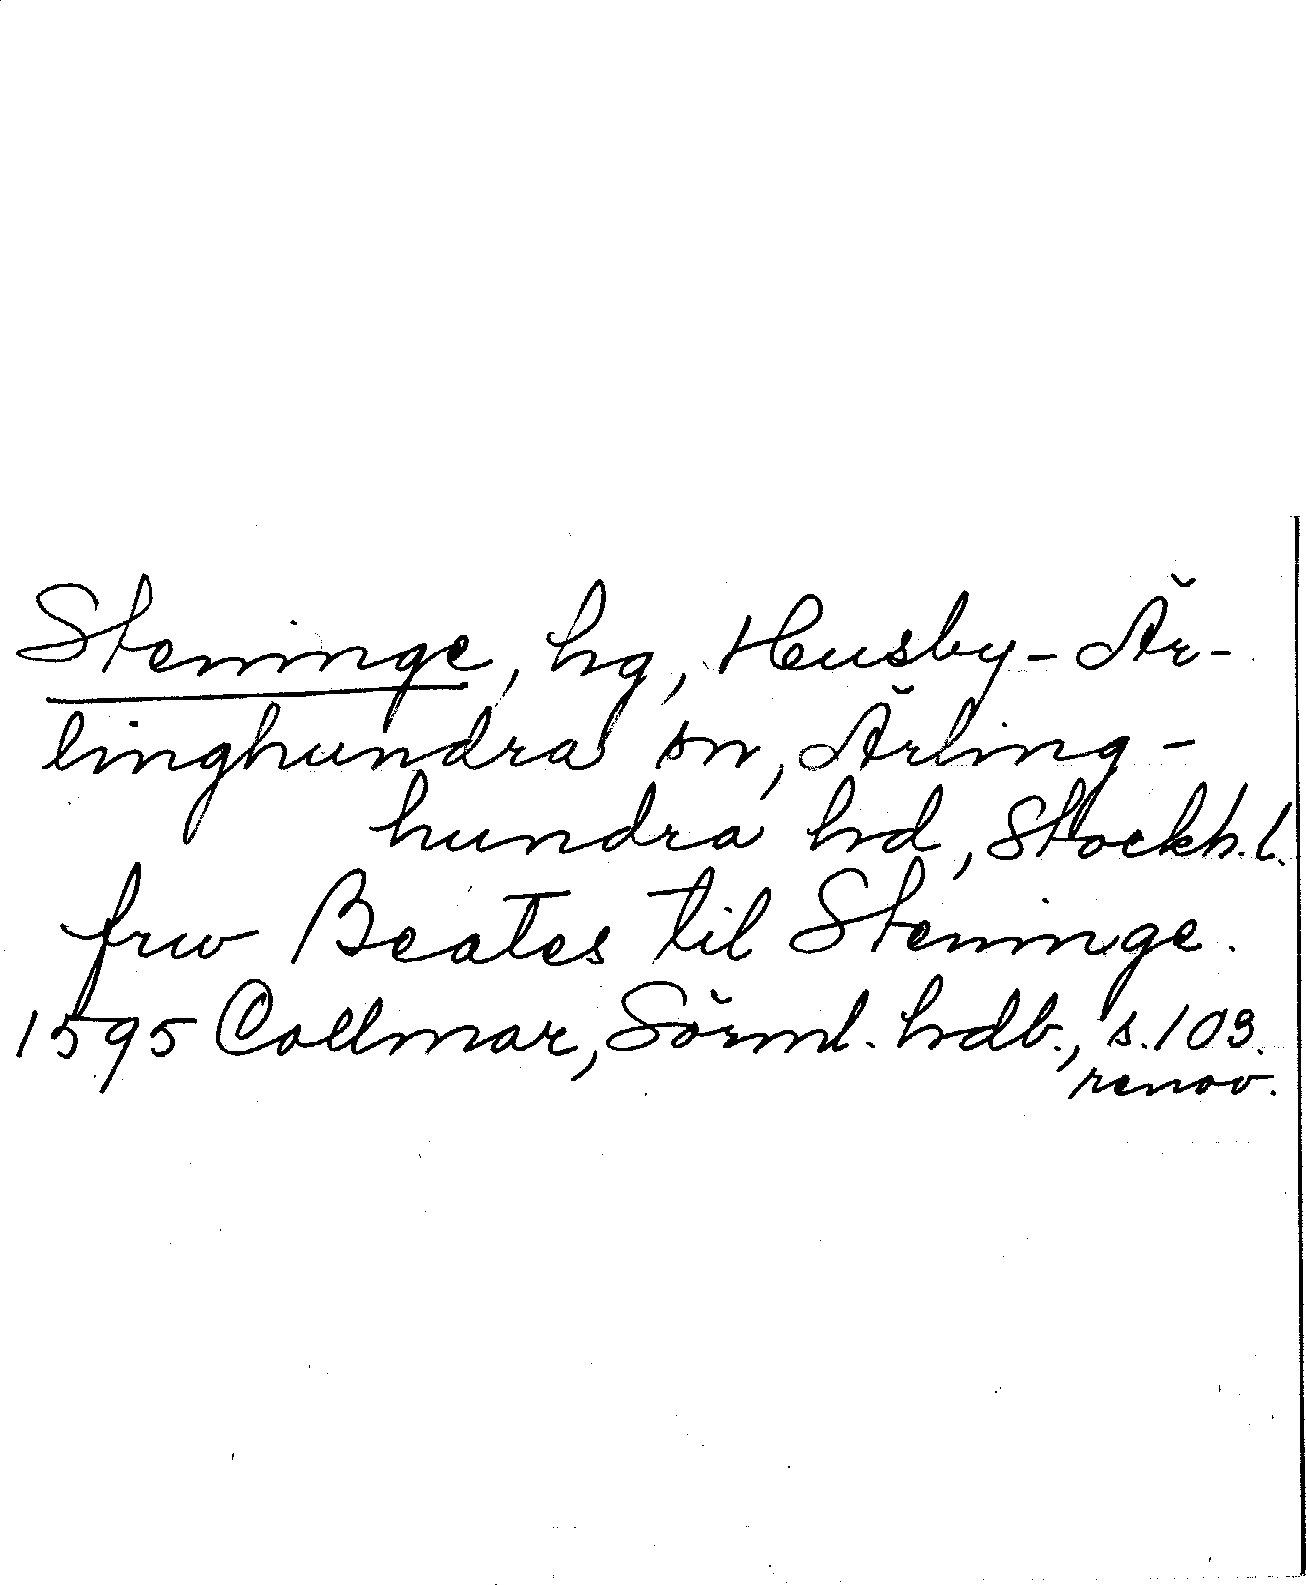 Steninge, hg, Husby-Är-
linghundra sn, Ärling-
hundra hd, Stockh.l.
frw Beates til Steninge.
1595 Collmar, Sörml. hdb., s.103.
renov.